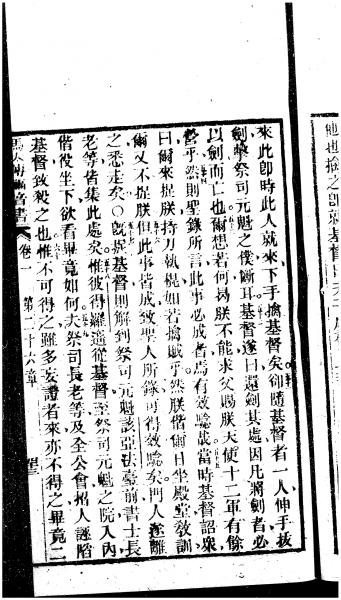 來此卽時此人就來下手擒基督矣卻隨基督者一人伸手拔
劍擊祭司元魁之僕斷耳基督遂曰還劍其處因凡將劍者必
以劍而亡也爾想若何曷朕不能求父賜朕天使十二軍有餘
乎然則聖錄所言此事必成者焉有效騐哉當時基督詔衆
曰爾來捉朕持刀執棍如若擒賊乎然朕偕爾日坐殿堂敎訓
爾又不捉朕但此事皆成致聖人所錄可得效騐矣門人遂離
之悉走矣○旣捉基督則解到祭司元魁該亞法臺前書士長
老等皆集此處矣惟彼得離遥從基督至祭司元魁之院入內
偕役坐下欲看畢竟如何夫祭司長老等及全公會招人誣謟
基督致殺之也惟不可得之雖多妄證者來亦不得之畢竟二
馬太傳福音書 卷一 第二十六章